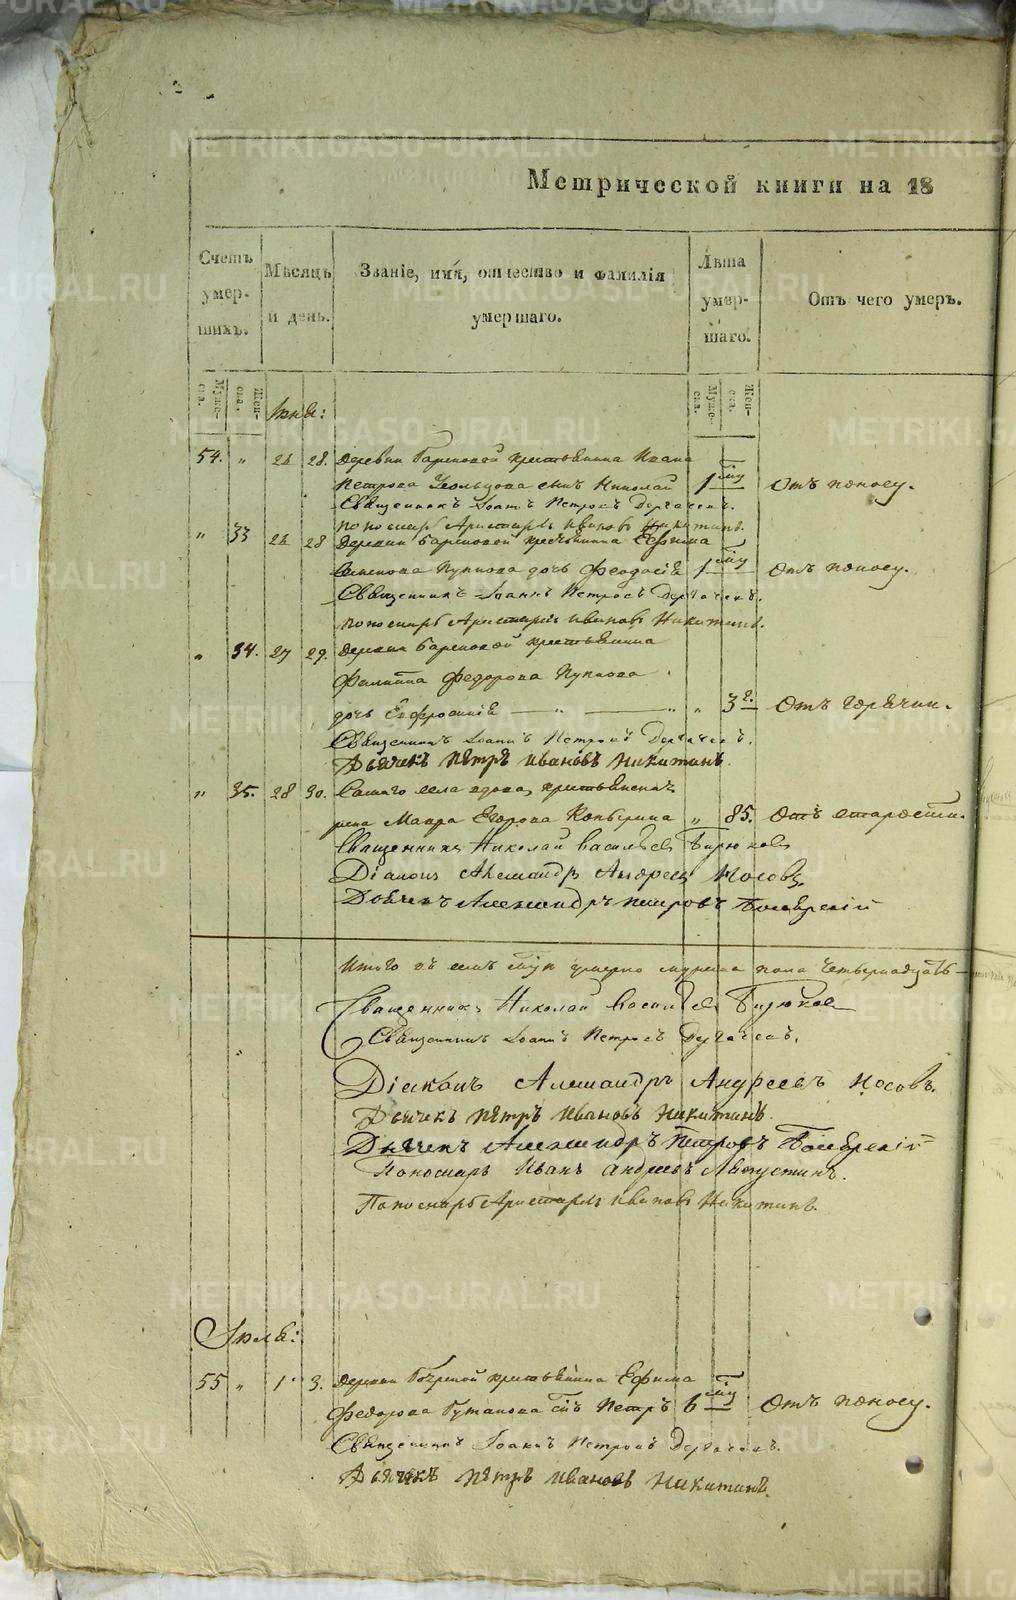 Метрической книги на 18
Счетъ умер- шихъ.
Мѣсяцъ и день.
Званіе, имя, отчество и фамилія умершаго.
Лѣта умер- шаго.
Отъ чего умеръ.
Муже- ска.
Жен- ска.
Муже- ска.
Жен- ска.
Іюнь:
54. „ 26 28. Деревни крестьянина Ивана
Петрова сынъ Николай 1 Отъ поносу.
Священникъ Іоаннъ Петровъ Дергачевъ.
Пономарь Аристархъ Ивановъ Никитинъ.
„ 33 26 28 Деревни крестьянина Ефима
Пупкова дочь Феодосія 1 Отъ поносу.
Священникъ Іоаннъ Петровъ Дергачевъ.
Пономарь Аристархъ Ивановъ Никитинъ.
„ 34. 27 29. Деревни крестьянина
Филиппа Федорова Пупкова
дочь Евфросинія „ „ „ 3 Отъ горячки.
Священникъ Іоаннъ Петровъ Дергачевъ.
Дьячекъ Петръ Ивановъ Никитинъ.
„ 35. 28 30. Сего села вдова, крестьянская
жена Мавра Егорова „ 85. Отъ старости.
Священникъ Николай Васильевъ Бирюковъ
Діаконъ Александръ Андреевъ Носовъ.
Дьячекъ Александръ Петровъ
Итого въ семъ умерло мужеска пола четырнадцать
Священникъ Николай Васильевъ Бирюковъ
Священникъ Іоаннъ Петровъ Дергачевъ.
Діаконъ Александръ Андреевъ Носовъ.
Дьячекъ Петръ Ивановъ Никитинъ.
Дьячекъ Александръ Петровъ
Пономарь Иванъ Андреевъ Августинъ.
Пономарь Аристархъ Ивановъ Никитинъ.
Іюль:
55 „ 1 3. Деревни крестьянина Ефима
Федорова сынъ Петръ 6 Отъ поносу.
Священникъ Іоаннъ Петровъ Дергачевъ.
Дьячекъ Петръ Ивановъ Никитинъ.
METRIKI.GASO-URAL.RU